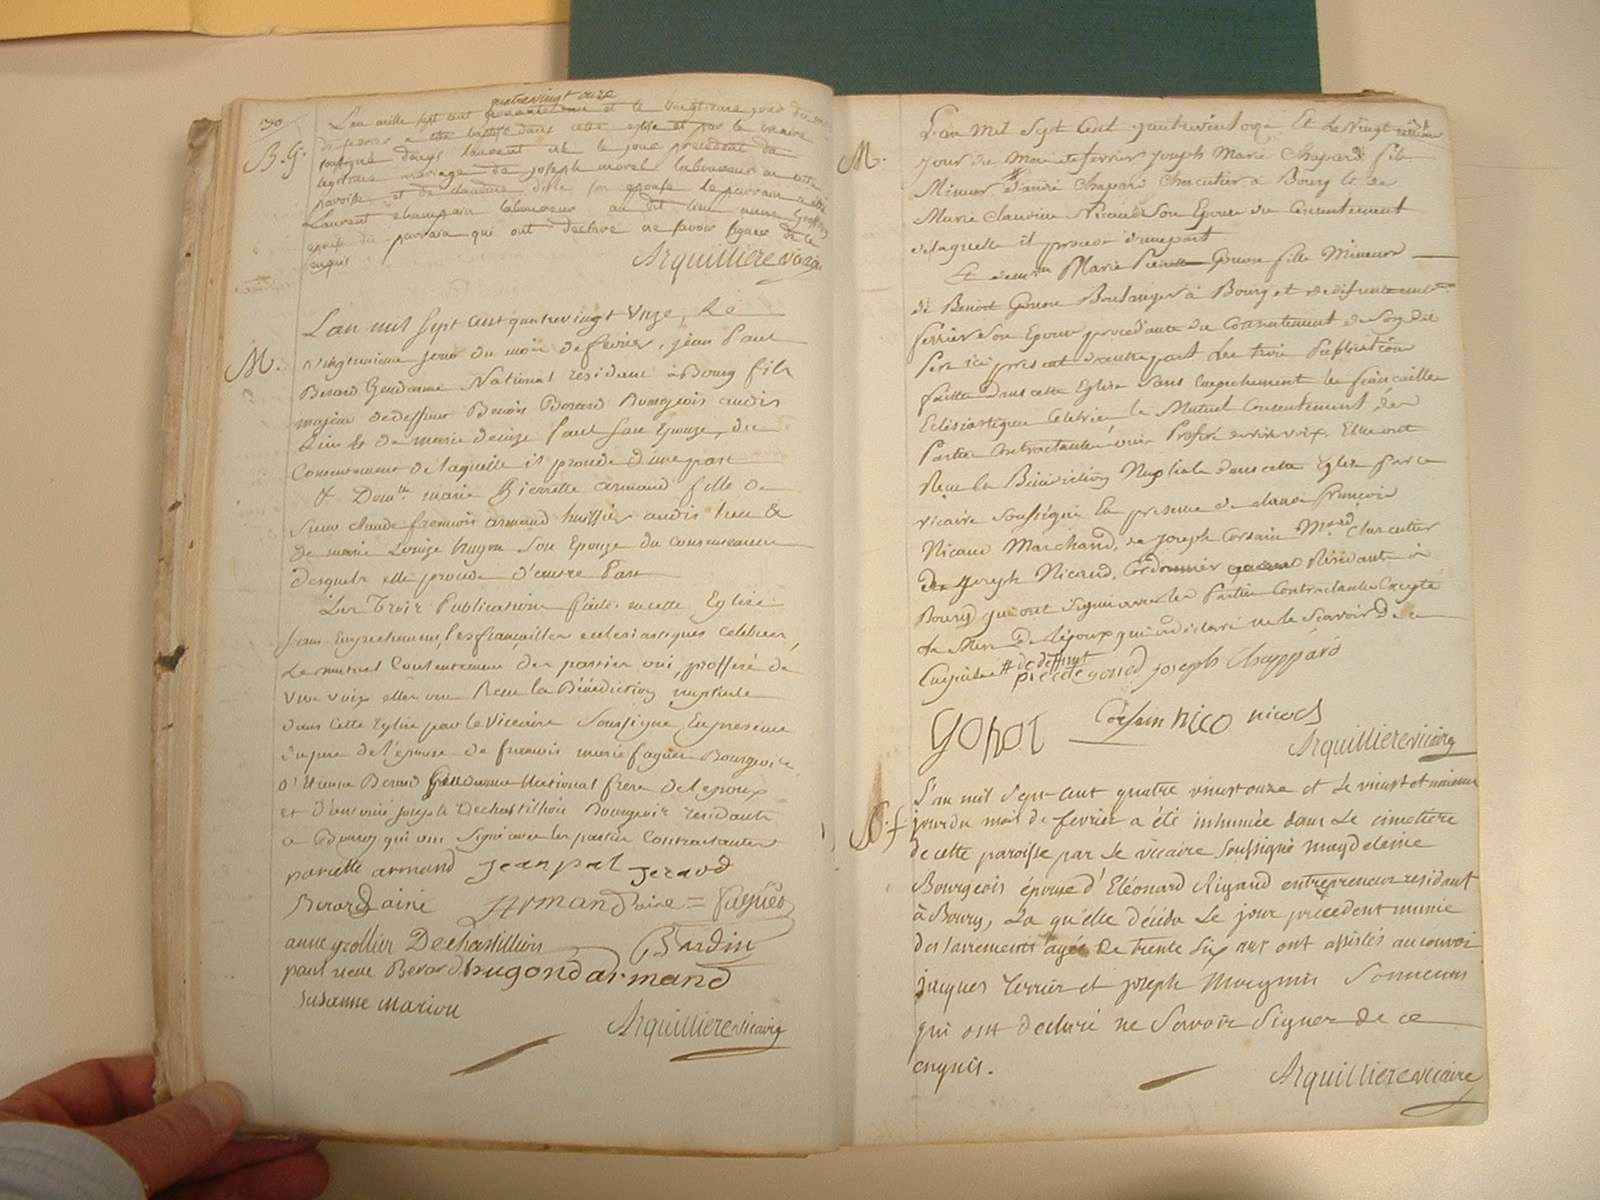 30
quatrevingt onze
L'an mille sept cent et le vingtieme jour du mois
B. G.
de fevrier a été baptisé dans cette eglise et par le vicaire
soussigné denys laurent né le jour precedent du
legitime mariage de joseph morel laboureur en cette
paroisse et de claudine son epouse le parrain a été
Laurent champain laboureur au dit lieu
epouse du parrain qui ont declaré ne savoir signer de ce
enquis
Arquilliere vicaire
M.
L'an mil sept cent quatre vingt unze, & le
vingtunieme jour du mois de fevrier, jean Paul
Berard Gendarme National résidant à Bourg fils
majeur de deffunt Benoit Berard Bourgeois audit
Lieu & de marie denize Paul son Epouze, du
Consentement de laquelle il procede d'une part
& Dem.lle marie Pierrette armand fille de
sieur claude francois armand huissier audit lieu &
de marie Louize hugon son Epouze du consentement
desquels elle procede d'autre Part
Les Trois Publications faites en cette Eglise
sans Empechement, les fiançailles ecclesiastiques célébrées,
Le mutuel Consentement des parties oui, proféré de
vive voix elles ont Recu la Bénédiction nuptiale
dans cette Eglise par le Vicaire Soussigné En presence
du pere de l'épouse de francois marie faguet Bourgeois,
d'Etienne Berard Gendarme National frere de l'epoux
et d'antoine joseph Dechastillion Bourgeois résidants
a Bourg qui ont Signé avec les parties Contractantes
pariette armand jean pal jeraud
Berard ainé Armand aine = faguet
anne grollier Dechastillion Bardin
paul veuve Berard hugond armand
Susanne mariou
Arquilliere vicaire
M.
L'an Mil Sept Cent quatrevint onze Et Le vingt
jour du Moi de fevrier joseph Marie Chapard fils
Mineur # d'andré Chapard Charcutier à Bourg & de
Marie Claudine Nicaud Son Epouse du Consentement
de laquelle il procede d'une part
Et dem.lle Marie Pierrette Gonon fille Mineure
de Benoit Gonon Boulanger à Bourg et de
ferrier Son Epouse procedante du Consentement de Son dit
Pere ici present d'autre part Les trois Publications
faitte dans cette Eglise Sans Empechement les fiancaille
Eclésiastique Celebrée le Mutuel Consentement des
Partie Contractante oui Proferé de vive voix. Elle ont
Reçu la Bénédiction Nuptiale dans cette Eglise par le
vicaire Soussigné En presence de claude francois
Nicaud Marchand, de joseph Corsain M.and Charcutier
de joseph Nicaud, Cordonnier Résidants à
Bourg qui ont Signé avec les Partie Contractantes Excepté
la Mere De L'époux qui a déclaré ne le Scavoir De ce
Enquise # de deffunt
pierete gonod joseph Chappard
Gonot Corsain nico nicod
Arquilliere vicaire
S. f.
L'an mil sept-cent quatre vingt onze et le vingt et unieme
jour du mois de fevrier a été inhumée dans le cimetiere
de cette paroisse par le vicaire soussigné magdeleine
Bourgeois épouse d'Eléonard Rigaud entrepreneur résidant
à Bourg, la qu'elle décéda le jour précédent munie
des sacrements agée de trente six ans ont assistés au convoi
jacques terrier et joseph Magnin Sonneurs
qui ont declaré ne Savoir Signer de ce
enquis.
Arquilliere vicaire